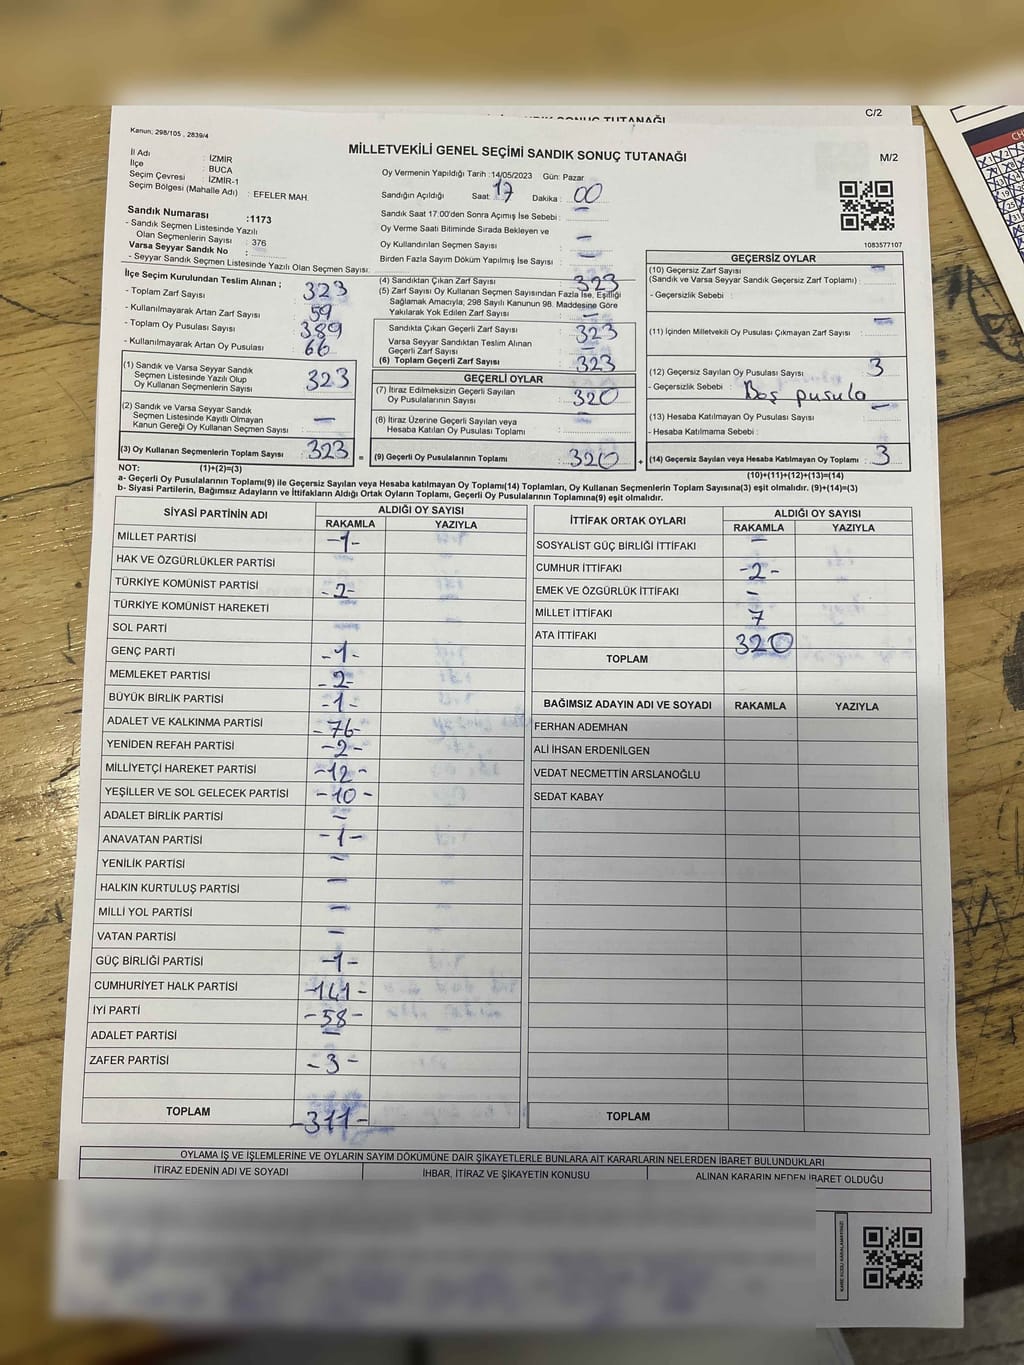 C/2
Kanun; 298/105 , 2839/4
MİLLETVEKİLİ GENEL SEÇİMİ SANDIK SONUÇ TUTANAĞI
M/2
İl Adı : İZMİR
İlçe : BUCA
Seçim Çevresi : İZMİR-1
Seçim Bölgesi (Mahalle Adı) : EFELER MAH.
Oy Vermenin Yapıldığı Tarih :14/05/2023 Gün: Pazar
Sandığın Açıldığı Saat: 17 Dakika : 00
Sandık Saat 17.00'den Sonra Açımış İse Sebebi :
Oy Verme Saati Bitiminde Sırada Bekleyen ve
Oy Kullandırılan Seçmen Sayısı : -
Birden Fazla Sayım Döküm Yapılmış İse Sayısı : -
1083577107
Sandık Numarası :1173
- Sandık Seçmen Listesinde Yazılı
Olan Seçmenlerin Sayısı : 376
Varsa Seyyar Sandık No :
- Seyyar Sandık Seçmen Listesinde Yazılı Olan Seçmen Sayısı:
İlçe Seçim Kurulundan Teslim Alınan ;
- Toplam Zarf Sayısı : 323
- Kullanılmayarak Artan Zarf Sayısı : 59
- Toplam Oy Pusulası Sayısı : 389
- Kullanılmayarak Artan Oy Pusulası : 66
(1) Sandık ve Varsa Seyyar Sandık
Seçmen Listesinde Yazılı Olup
Oy Kullanan Seçmenlerin Sayısı : 323
(2) Sandık ve Varsa Seyyar Sandık
Seçmen Listesinde Kayıtlı Olmayan
Kanun Gereği Oy Kullanan Seçmen Sayısı : -
(3) Oy Kullanan Seçmenlerin Toplam Sayısı : 323
(4) Sandıktan Çıkan Zarf Sayısı : 323
(5) Zarf Sayısı Oy Kullanan Seçmen Sayısından Fazla İse, Eşitliği
Sağlamak Amacıyla; 298 Sayılı Kanunun 98. Maddesine Göre
Yakılarak Yok Edilen Zarf Sayısı : -
Sandıkta Çıkan Geçerli Zarf Sayısı : 323
Varsa Seyyar Sandıktan Teslim Alınan
Geçerli Zarf Sayısı : -
(6) Toplam Geçerli Zarf Sayısı : 323
GEÇERLİ OYLAR
(7) İtiraz Edilmeksizin Geçerli Sayılan
Oy Pusulalarının Sayısı : 320
(8) İtiraz Üzerine Geçerli Sayılan veya
Hesaba Katılan Oy Pusulası Toplamı : -
= (9) Geçerli Oy Pusulalarının Toplamı : 320
GEÇERSİZ OYLAR
(10) Geçersiz Zarf Sayısı : -
(Sandık ve Varsa Sandık Geçersiz Zarf Toplamı) :
- Geçersizlik Sebebi :
(11) İçinden Milletvekili Oy Pusulası Çıkmayan Zarf Sayısı : -
(12) Geçersiz Sayılan Oy Pusulası Sayısı : 3
- Geçersizlik Sebebi : Boş pusula
(13) Hesaba Katılmayan Oy Pusulası Sayısı : -
- Hesaba Katılmama Sebebi :
+ (14) Geçersiz Sayılan veya Hesaba Katılmayan Oy Toplamı : 3
NOT: (1)+(2)=(3)
(10)+(11)+(12)+(13)=(14)
a- Geçerli Oy Pusulalarının Toplamı(9) ile Geçersiz Sayılan veya Hesaba katılmayan Oy Toplamı(14) Toplamları, Oy Kullanan Seçmenlerin Toplam Sayısına(3) eşit olmalıdır. (9)+(14)=(3)
b- Siyasi Partilerin, Bağımsız Adayların ve İttifakların Aldığı Ortak Oyların Toplamı, Geçerli Oy Pusulalarının Toplamına(9) eşit olmalıdır.
SİYASİ PARTİNİN ADI
ALDIĞI OY SAYISI
RAKAMLA YAZIYLA
MİLLET PARTİSİ -1-
HAK VE ÖZGÜRLÜKLER PARTİSİ
TÜRKİYE KOMÜNİST PARTİSİ -2-
TÜRKİYE KOMÜNİST HAREKETİ
SOL PARTİ
GENÇ PARTİ -1-
MEMLEKET PARTİSİ -2-
BÜYÜK BİRLİK PARTİSİ -1-
ADALET VE KALKINMA PARTİSİ -76-
YENİDEN REFAH PARTİSİ -2-
MİLLİYETÇİ HAREKET PARTİSİ -12-
YEŞİLLER VE SOL GELECEK PARTİSİ -10-
ADALET BİRLİK PARTİSİ -
ANAVATAN PARTİSİ -1-
YENİLİK PARTİSİ -
HALKIN KURTULUŞ PARTİSİ -
MİLLİ YOL PARTİSİ -
VATAN PARTİSİ -
GÜÇ BİRLİĞİ PARTİSİ -1-
CUMHURİYET HALK PARTİSİ -141-
İYİ PARTİ -58-
ADALET PARTİSİ -
ZAFER PARTİSİ -3-
TOPLAM -311-
İTTİFAK ORTAK OYLARI
ALDIĞI OY SAYISI
RAKAMLA YAZIYLA
SOSYALİST GÜÇ BİRLİĞİ İTTİFAKI -
CUMHUR İTTİFAKI -2-
EMEK VE ÖZGÜRLÜK İTTİFAKI -
MİLLET İTTİFAKI 7
ATA İTTİFAKI 320
TOPLAM
BAĞIMSIZ ADAYIN ADI VE SOYADI RAKAMLA YAZIYLA
FERHAN ADEMHAN
ALİ İHSAN ERDENİLGEN
VEDAT NECMETTİN ARSLANOĞLU
SEDAT KABAY
TOPLAM
OYLAMA İŞ VE İŞLEMLERİNE VE OYLARIN SAYIM DÖKÜMÜNE DAİR ŞİKAYETLERLE BUNLARA AİT KARARLARIN NELERDEN İBARET BULUNDUKLARI
İTİRAZ EDENİN ADI VE SOYADI
İHBAR, İTİRAZ VE ŞİKAYETİN KONUSU
ALINAN KARARIN NEDEN İBARET OLDUĞU
KARE KODU KARALAMAYINIZ!